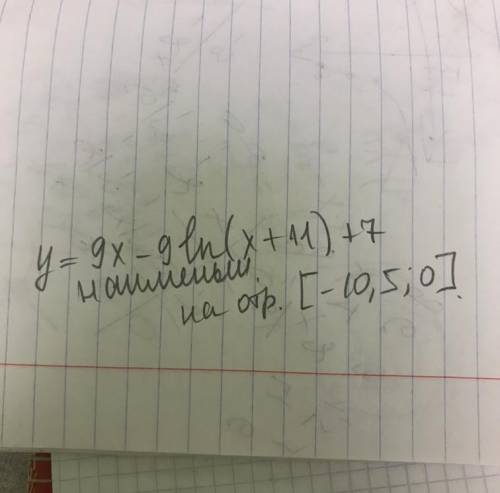 y = 9x - 9 ln(x + 11) + 7
наименьш.
на отр. [-10,5; 0].